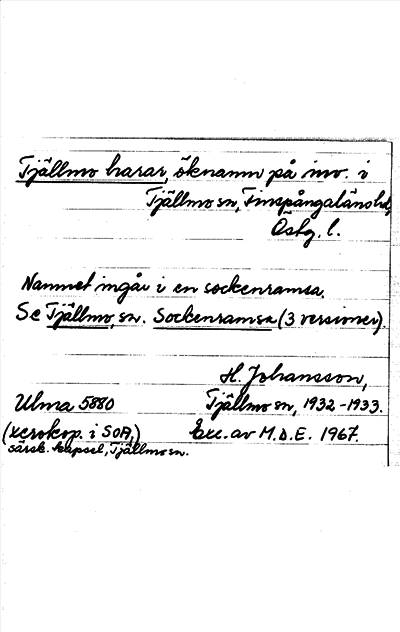 Tjällmo harar, öknamn på inv. i
Tjällmo sn, Finspångaläns hd,
Östg. l.
Namnet ingår i en sockenramsa.
Se Tjällmo, sn. Sockenramsa (3 versioner)
H. Johansson,
Ulma 5880 Tjällmo sn, 1932-1933.
(xerokop. i SOA,) Exc. av M.D.E. 1967.
särsk. kapsel, Tjällmo sn.